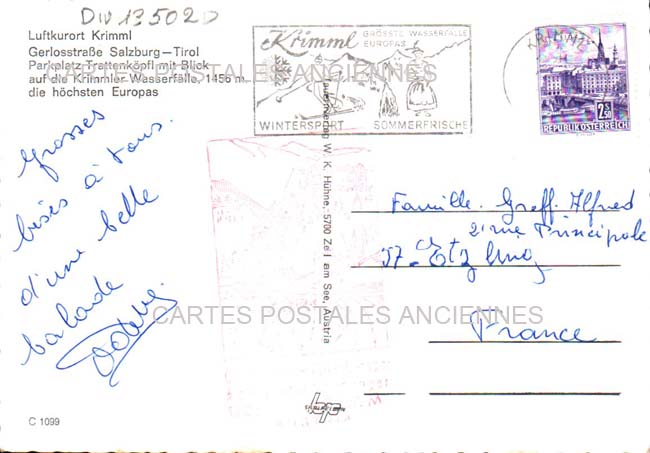 DIV 13502D
Luftkurort Krimml
Gerlosstraße Salzburg—Tirol
Parkplatz Trattenköpfl mit Blick
auf die Krimmler Wasserfälle, 1456 m
die höchsten Europas
Krimml
GRÖSSTE WASSERFÄLLE
EUROPAS
WINTERSPORT SOMMERFRISCHE
2.50
REPUBLIK ÖSTERREICH
CARTES POSTALES ANCIENNES
Grosses
bises à tous.
d'une belle
balade
W. K. Hühne, 5700 Zell am See, Austria
Famille Greff Alfred
2 rue Principale
57
France
CARTES POSTALES ANCIENNES
C 1099